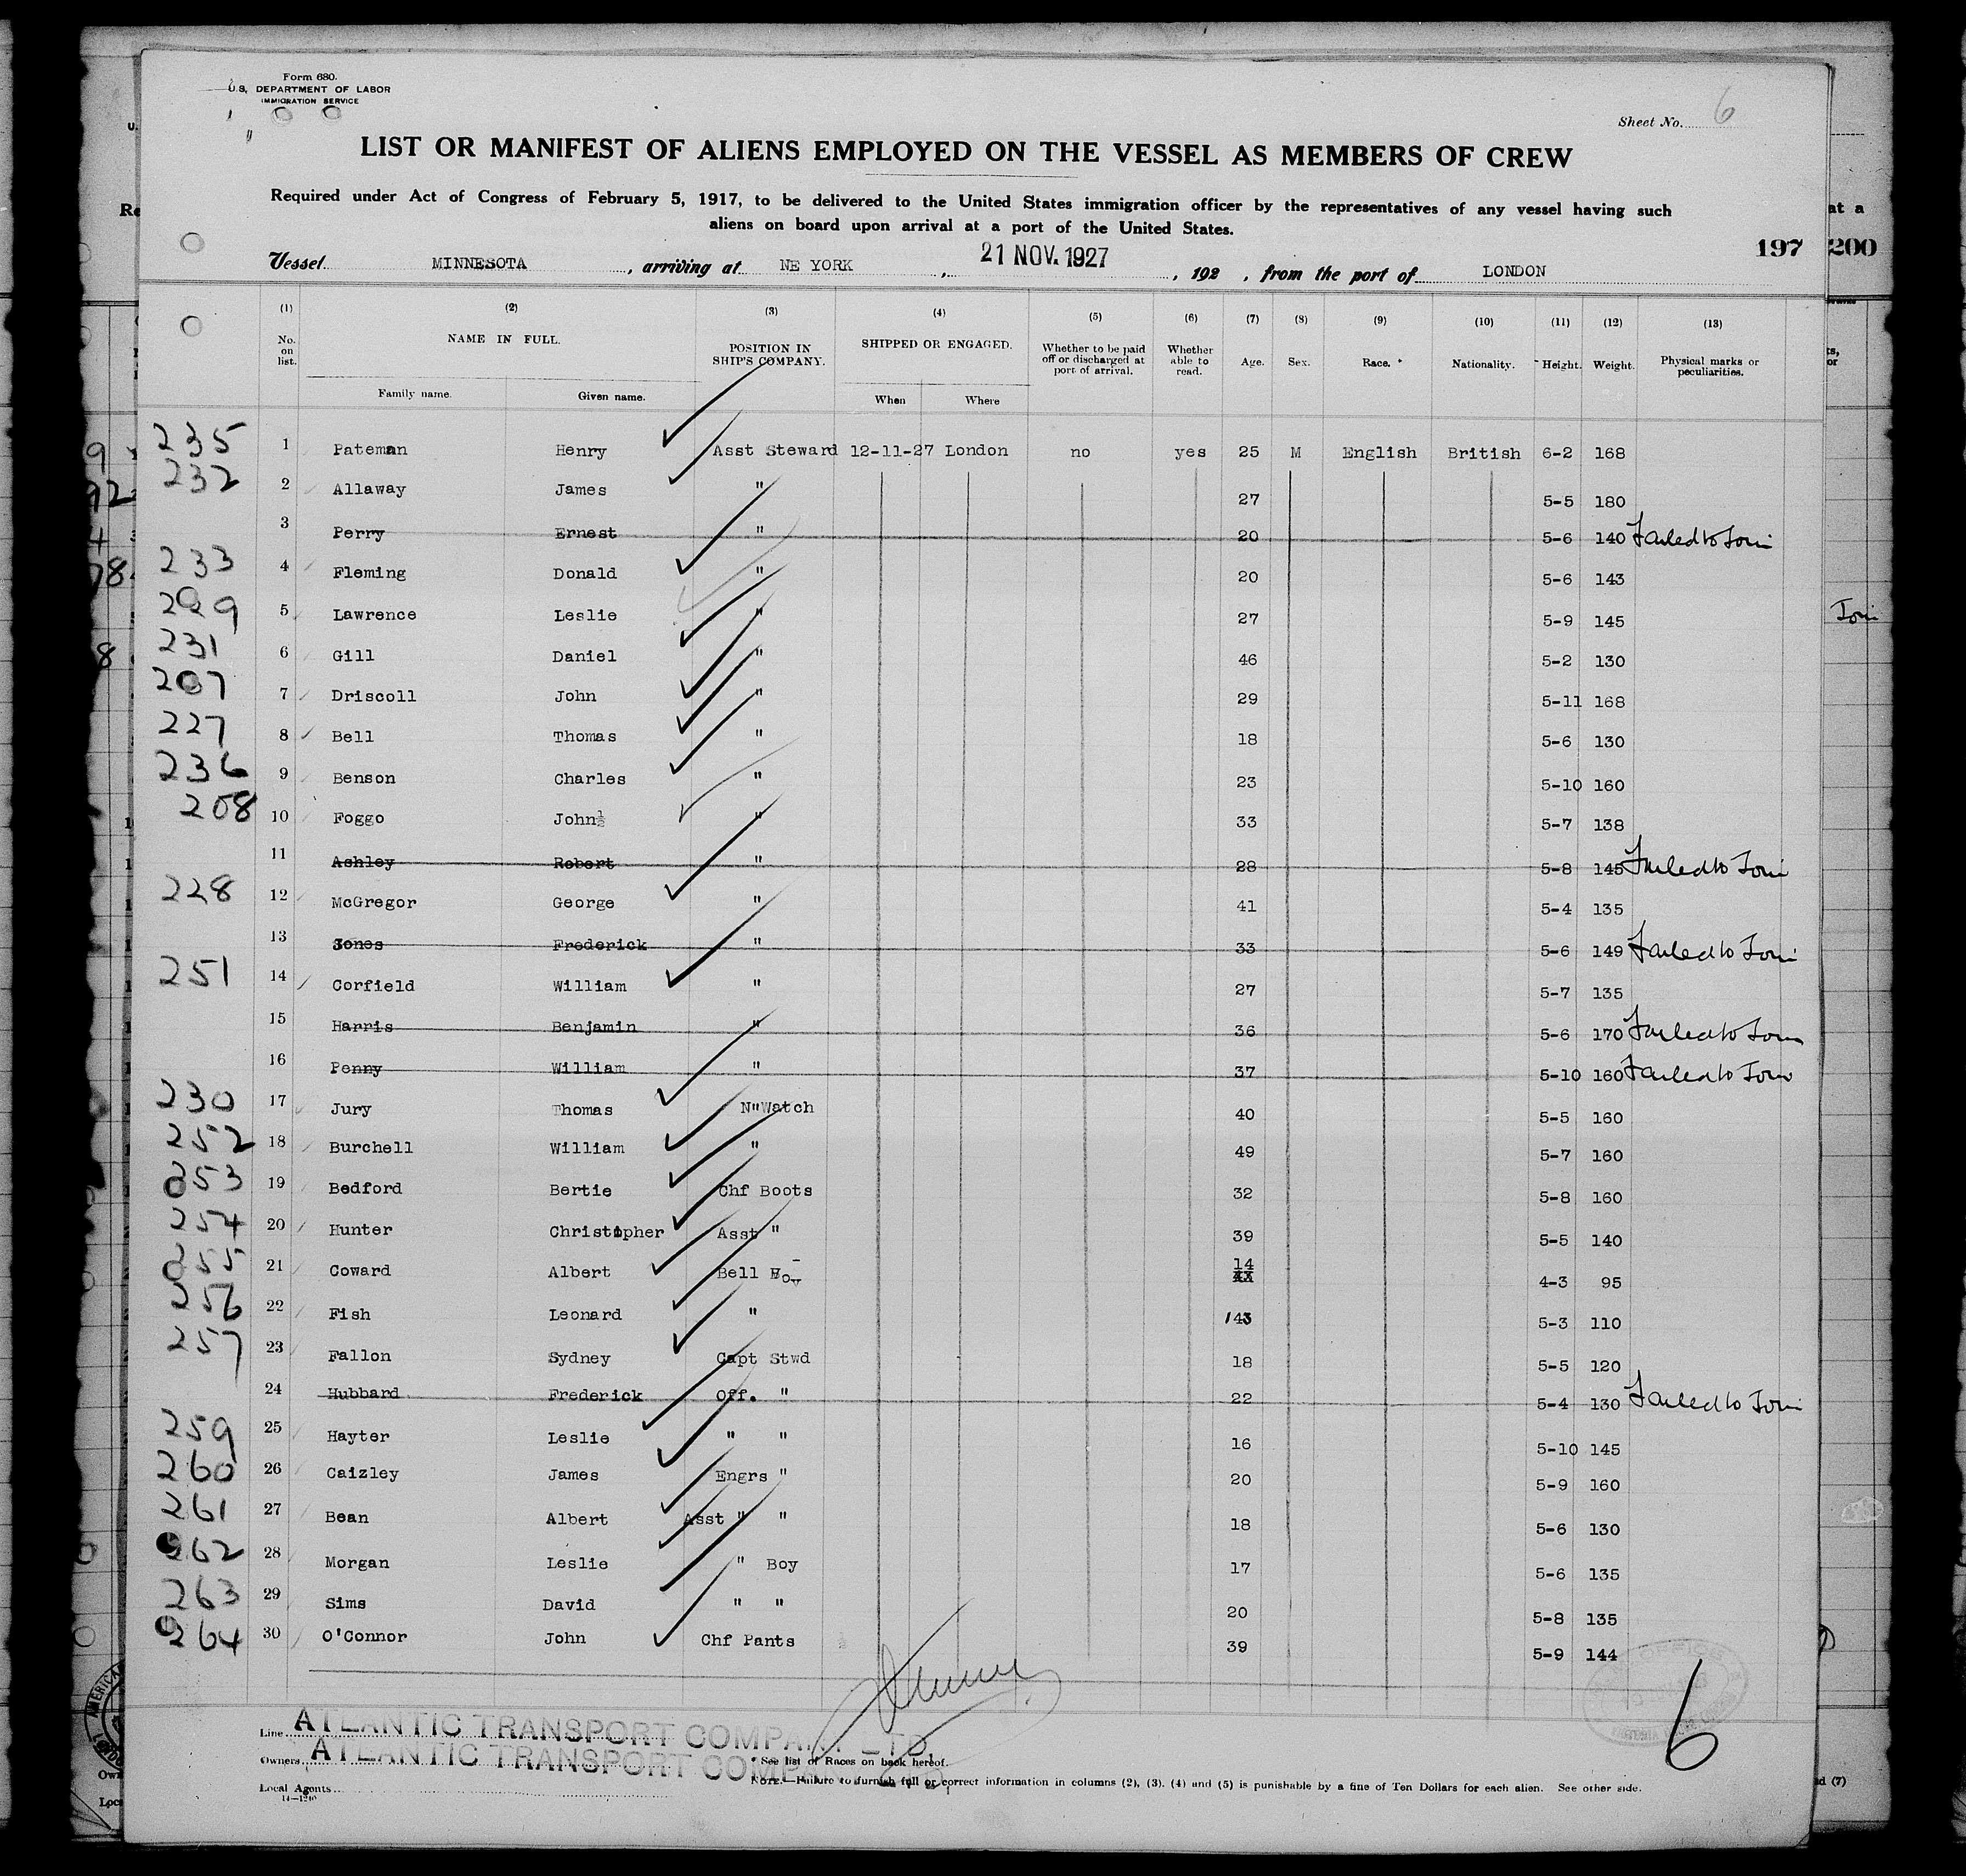 Form 680.
U.S. DEPARTMENT OF LABOR
IMMIGRATION SERVICE
Sheet No. 6
LIST OR MANIFEST OF ALIENS EMPLOYED ON THE VESSEL AS MEMBERS OF CREW
Required under Act of Congress of February 5, 1917, to be delivered to the United States immigration officer by the representatives of any vessel having such
aliens on board upon arrival at a port of the United States.
197 200
Vessel MINNESOTA, arriving at NE YORK, 21 NOV. 1927, 192 , from the port of LONDON
(1) (2) (3) (4) (5) (6) (7) (8) (9) (10) (11) (12) (13)
No. on list. NAME IN FULL. POSITION IN SHIP'S COMPANY. SHIPPED OR ENGAGED. Whether to be paid off or discharged at port of arrival. Whether able to read. Age. Sex. Race.* Nationality. Height. Weight. Physical marks or peculiarities.
Family name. Given name. When Where
235 1 Pateman Henry Asst Steward 12-11-27 London no yes 25 M English British 6-2 168
232 2 Allaway James " 27 5-5 180
3 Perry Ernest " 20 5-6 140 Failed to Join
233 4 Fleming Donald " 20 5-6 143
229 5 Lawrence Leslie " 27 5-9 145
231 6 Gill Daniel " 46 5-2 130
207 7 Driscoll John " 29 5-11 168
227 8 Bell Thomas " 18 5-6 130
236 9 Benson Charles " 23 5-10 160
208 10 Foggo John " 33 5-7 138
11 Ashley Robert " 28 5-8 145 Failed to Join
228 12 McGregor George " 41 5-4 135
13 Jones Frederick " 33 5-6 149 Failed to Join
251 14 Corfield William " 27 5-7 135
15 Harris Benjamin " 36 5-6 170 Failed to Join
16 Penny William " 37 5-10 160 Failed to Join
230 17 Jury Thomas N"Watch 40 5-5 160
252 18 Burchell William " 49 5-7 160
253 19 Bedford Bertie Chf Boots 32 5-8 160
254 20 Hunter Christopher Asst " 39 5-5 140
255 21 Coward Albert Bell Boy 14 4-3 95
256 22 Fish Leonard " 5-3 110
257 23 Fallon Sydney Capt Stwd 18 5-5 120
24 Hubbard Frederick Off. " 22 5-4 130 Failed to Join
259 25 Hayter Leslie " " 16 5-10 145
260 26 Caizley James Engrs " 20 5-9 160
261 27 Bean Albert Asst " " 18 5-6 130
262 28 Morgan Leslie " Boy 17 5-6 135
263 29 Sims David " " 20 5-8 135
264 30 O'Connor John Chf Pants 39 5-9 144
6
Line ATLANTIC TRANSPORT COMPANY LTD.
Owners ATLANTIC TRANSPORT COMPANY
* See list of Races on back hereof.
Local Agents
NOTE.—Failure to furnish full or correct information in columns (2), (3), (4) and (5) is punishable by a fine of Ten Dollars for each alien. See other side.
14—1240